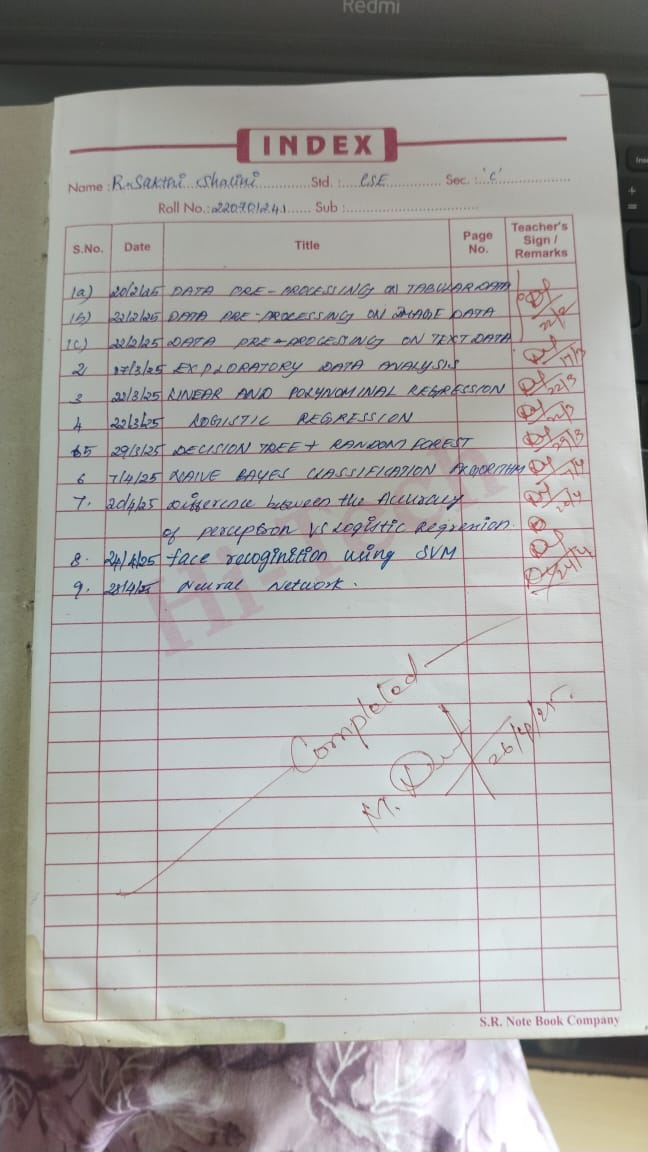 Redmi
INDEX
Name : R. Sakthi Shalini Std. : CSE Sec. : 'C'
Roll No. : 220701241 Sub :
S.No. Date Title Page No. Teacher's Sign / Remarks
1a) 20/2/25 DATA PRE-PROCESSING ON TABULAR DATA
1b) 22/2/25 DATA PRE-PROCESSING ON IMAGE DATA
1c) 22/2/25 DATA PRE-PROCESSING ON TEXT DATA
2 17/3/25 EXPLORATORY DATA ANALYSIS 17/3
3 22/3/25 LINEAR AND POLYNOMINAL REGRESSION 22/3
4 22/3/25 LOGISTIC REGRESSION 22/3
5 29/3/25 DECISION TREE + RANDOM FOREST 29/3
6 7/4/25 NAIVE BAYES CLASSIFICATION ALGORITHM 7/4
7. 20/4/25 Difference between the Accuracy 20/4
of perceptron vs Logistic Regression.
8. 24/4/25 face recoginition using SVM
9. 28/4/25 Neural Network. 24/4
Hi-Tech
Completed
26/4/25.
S.R. Note Book Company